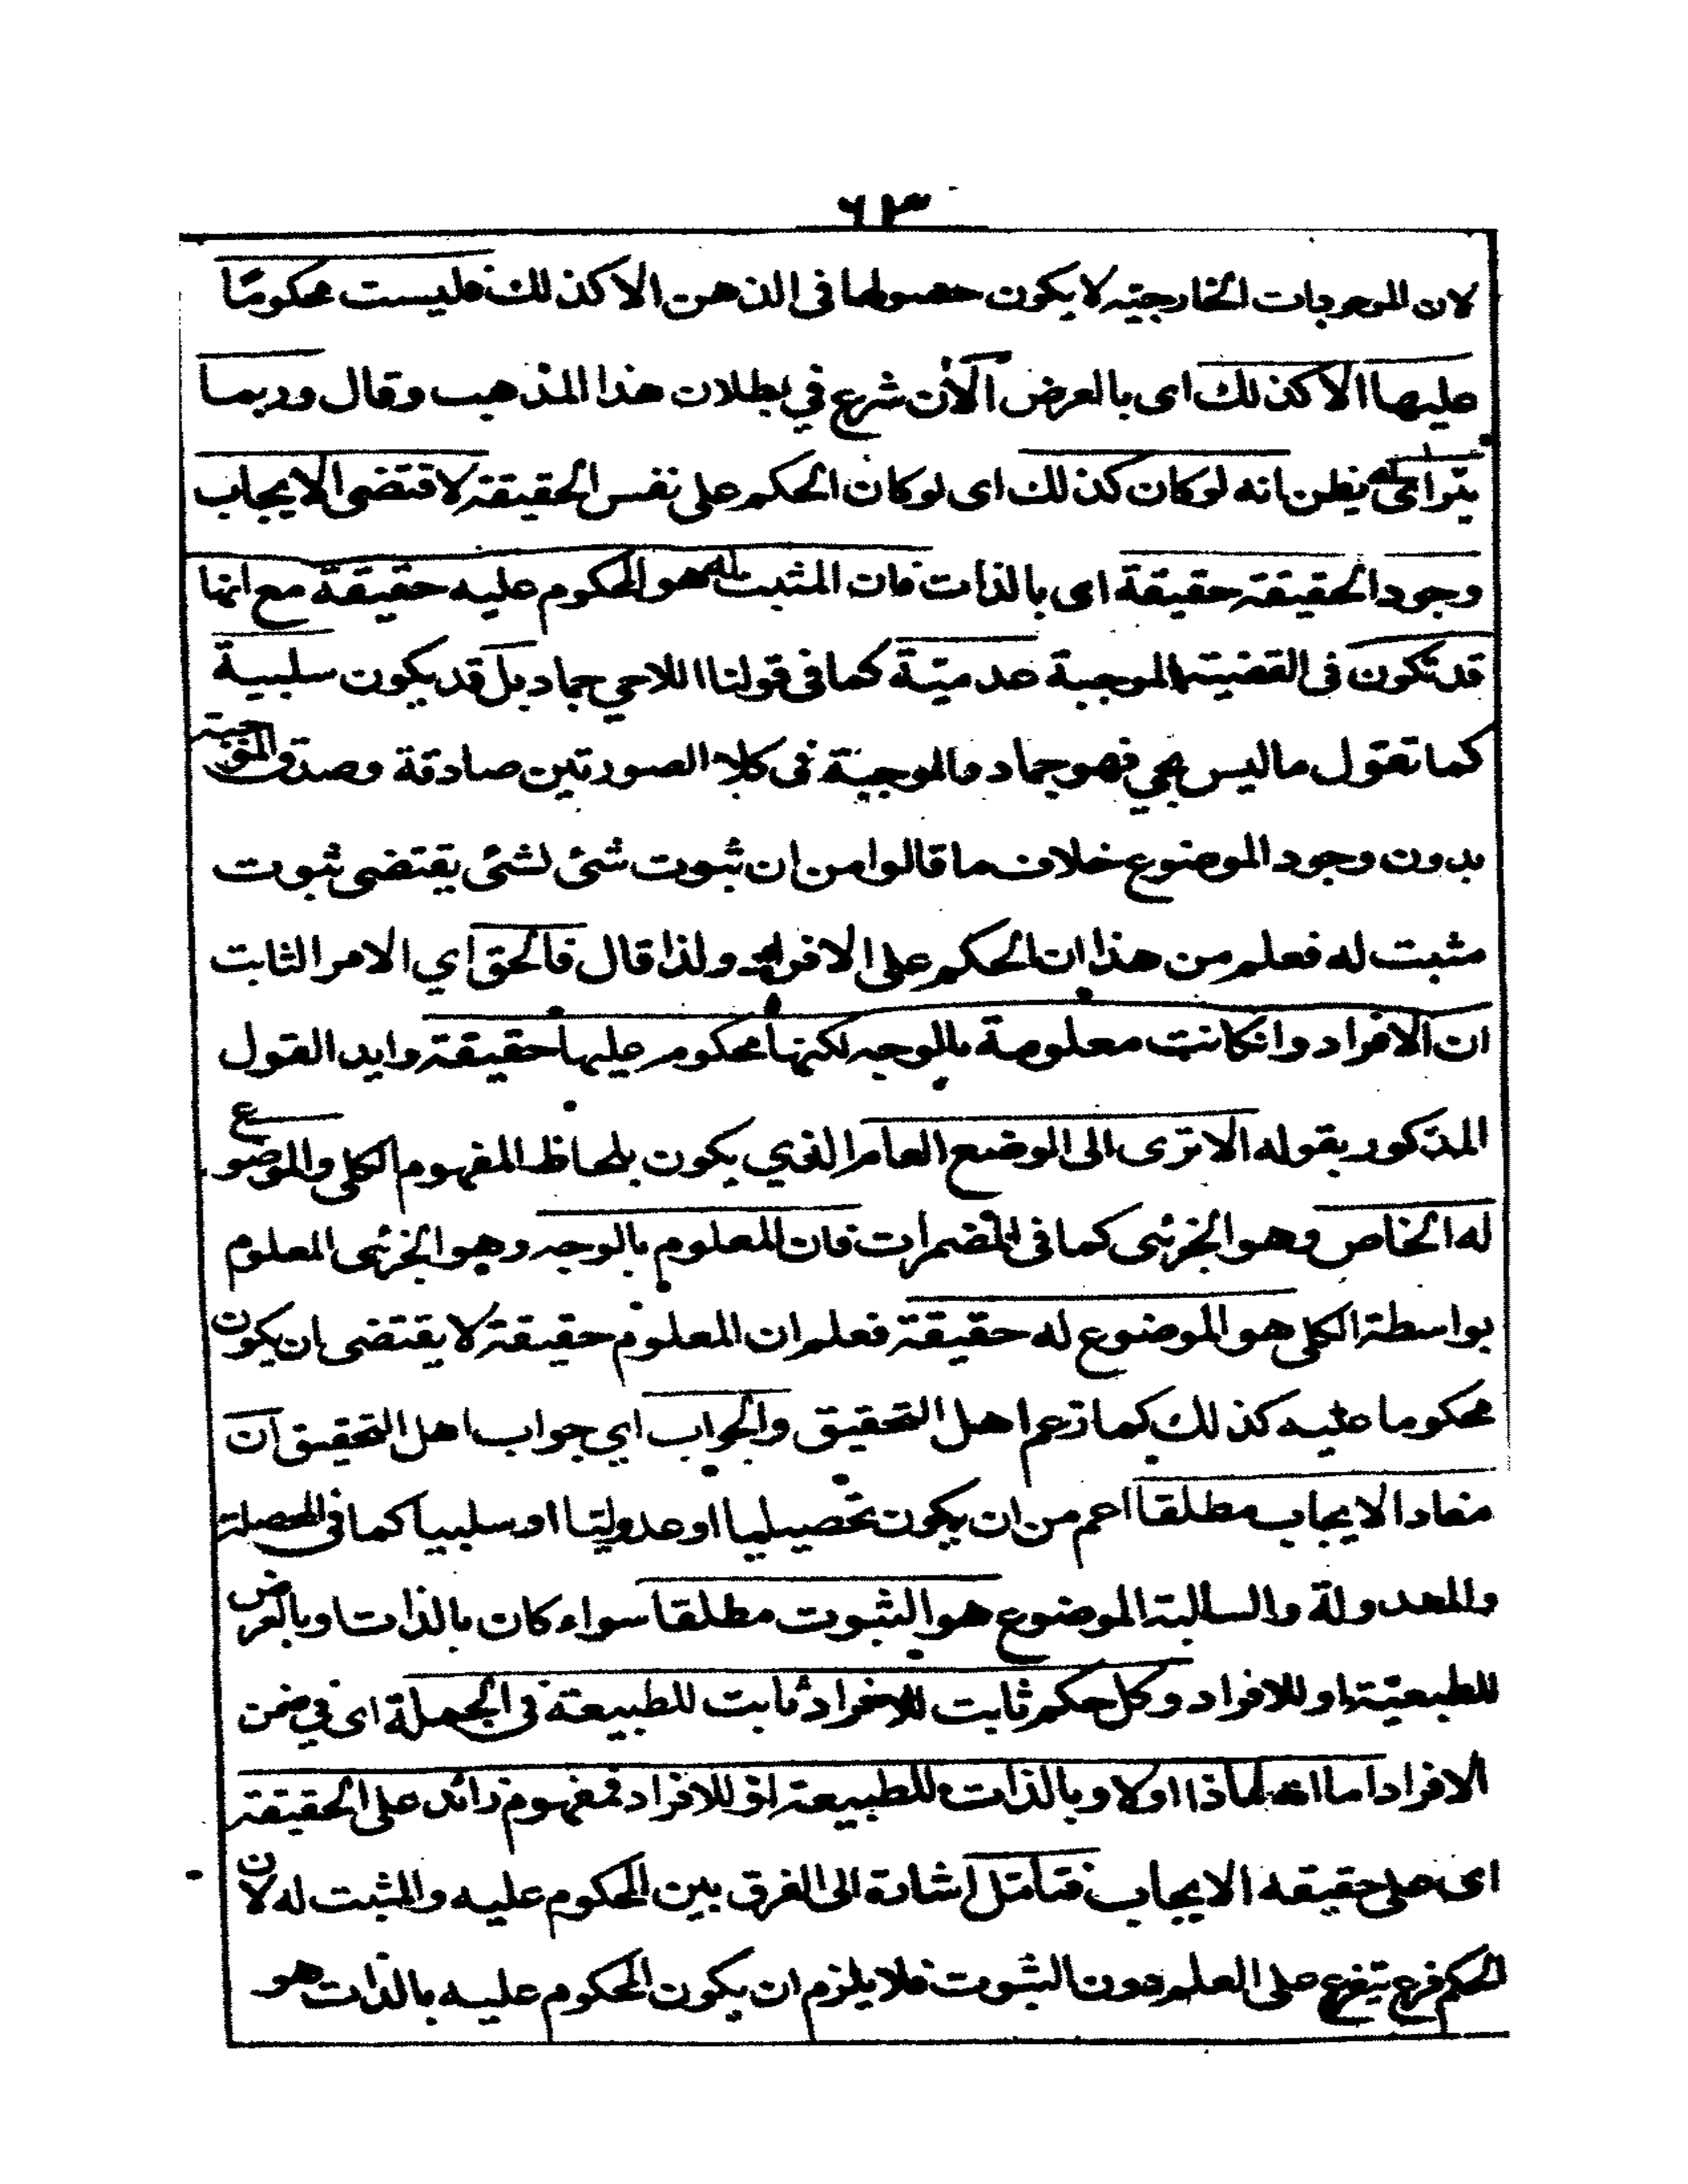 ٦٣
لان الموجبات الخارجية لا يكون حصولها فى الذهن الا كذلك فليست محكومًا
عليها الا كذلك اى بالعرض الأن شرع في بطلان هذا المذهب وقال وربما
يترا اى يظن انه لو كان كذلك اى لو كان الحكم على نفس الحقيقة لاقتضى الايجاب
وجود الحقيقة حقيقة اى بالذات فان المثبت له هو المحكوم عليه حقيقة مع انها
قد تكون فى القضية الموجبة عدميّة كما فى قولنا اللاحي جماد بل قد يكون سلبية
كما تقول ما ليس بحي فهو جماد فالموجبة فى كلا الصورتين صادقة وصدق الموجبة
بدون وجود الموضوع خلاف ما قالوا من ان ثبوت شئ لشئ يقتضى ثبوت
مثبت له فعلم من هذا ان الحكم على الافراد ولذا قال فالحق اي الامر الثابت
ان الافراد وانكانت معلومة بالوجه لكنها محكوم عليها حقيقة وايد القول
المذكور بقوله الا ترى الى الوضع العام الذي يكون بلحاظ المفهوم الكلى والموضوع
له الخاص وهو الجزئى كما فى المضمرات فان المعلوم بالوجه وهو الجزئى المعلوم
بواسطة الكلى هو الموضوع له حقيقة فعلم ان المعلوم حقيقة لا يقتضى ان يكون
محكوما عليه كذلك كما زعم اهل التحقيق والجواب اي جواب اهل التحقيق ان
مفاد الايجاب مطلقا اعم من ان يكون تحصيليا او عدوليّا او سلبيا كما فى المحصلة
والمعدولة والسالبة الموضوع هو الثبوت مطلقا سواء كان بالذات او بالعرض
للطبعيّة او للافراد وكل حكم ثابت للافراد ثابت للطبيعة فى الجملة اى في ضمن
الافراد اما انه لماذا اولا وبالذات للطبيعة او للافراد فمفهوم زائد على الحقيقة
اى على حقيقه الايجاب فتأمّل اشارة الى الفرق بين المحكوم عليه والمثبت له لان
الحكم فرع يتفرع على العلم دون الثبوت فلا يلزم ان يكون المحكوم عليه بالذات هو